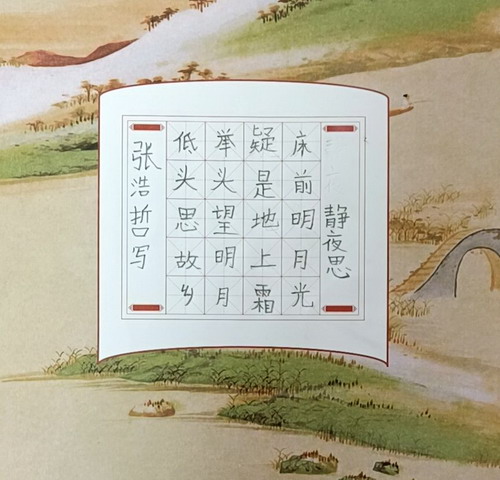 静夜思
床前明月光
疑是地上霜
举头望明月
低头思故乡
张浩哲写